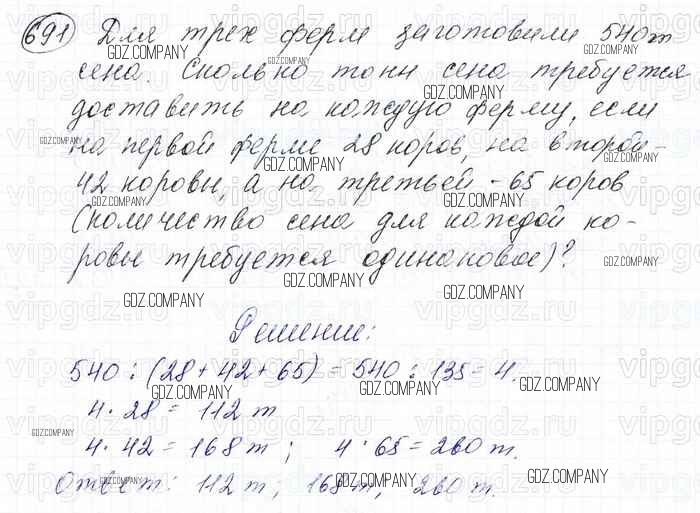 691 Для трех ферм заготовили 540 т
сена. Сколько тонн сена требуется
доставить на каждую ферму, если
на первой ферме 28 коров, на второй -
42 коровы, а на третьей - 65 коров
(количество сена для каждой ко-
ровы требуется одинаковое)?
Решение:
540 : (28 + 42 + 65) = 540 : 135 = 4.
4 · 28 = 112 т
4 · 42 = 168 т ; 4 · 65 = 260 т.
Ответ: 112 т; 168 т, 260 т.
GDZ.COMPANY
vipgdz.ru